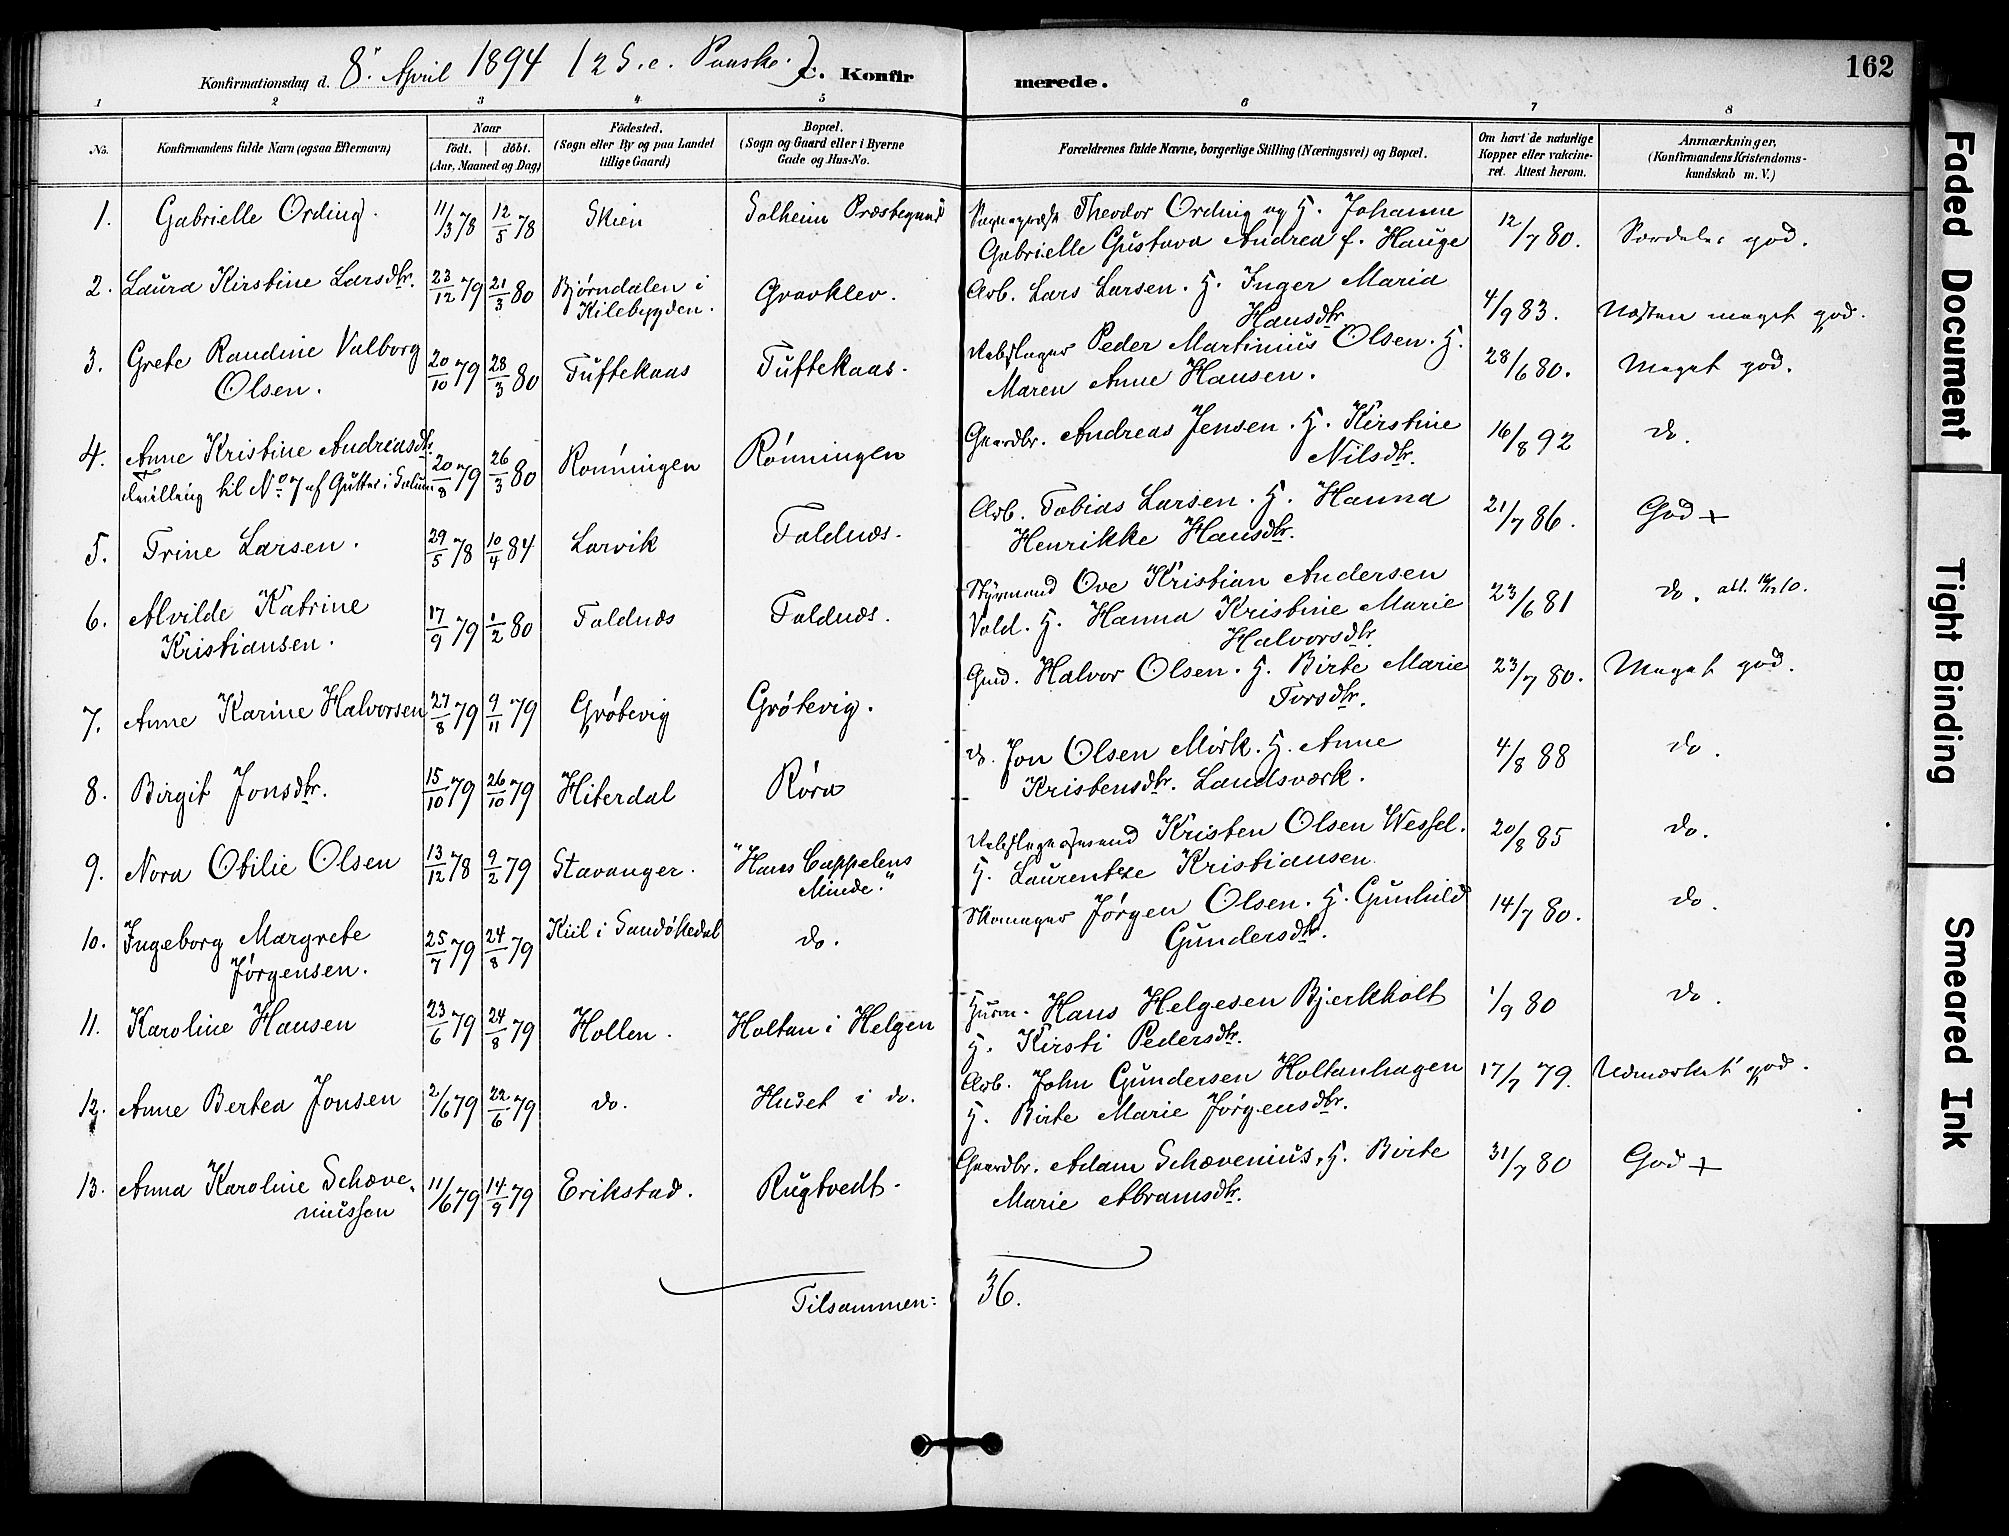 Konfirmationsdag d. 8' April 1894 (2 S. e. Paaske.) C. Konfirmerede. 162
1 2 3 4 5 6 7 8
No. Konfirmandens fulde Navn (ogsaa Efternavn) Naar født. døbt. (Aar, Maaned og Dag) Fødested. (Sogn eller By og paa Landet tillige Gaard) Bopæl. (Sogn og Gaard eller i Byerne Gade og Hus-No. Forældrenes fulde Navne, borgerlige Stilling (Næringsvei) og Bopæl. Om havt de naturlige Kopper eller vakcineret. Attest herom. Anmærkninger, (Konfirmandens Kristendomskundskab m. V.)
1. Gabrielle Ording. 11/3 78 12/5 78 Skien Solheim Præstegaard Sognepræst Theodor Ording og H. Johanne 12/7 80. Særdeles god.
Gabrielle Gustava Andrea f. Hauge
2. Laura Kirstine Larsdtr. 23/12 79 21/3 80 Bjørndalen i Kilebygden. Gravklev. Arb. Lars Larsen. H. Inger Maria 4/9 83. Næsten meget god.
Hansdtr.
3. Grete Randine Valborg 20/10 79 28/3 80 Tuftekaas Tuftekaas. Rebslager Peder Martinius Olsen. H. 28/6 80. Meget god.
Olsen. Maren Anne Hansen.
4. Anne Kristine Andreasdtr. 20/8 79 26/3 80 Rønningen Rønningen Gaardbr. Andreas Jensen. H. Kirstine 16/8 92 do.
Tvilling til No 7 af Gutter i Solum Nilsdtr.
5. Trine Larsen. 29/5 78 10/4 84 Larvik Foldnæs. Arb. Tobias Larsen. H. Hanna 21/7 86. God +
Henrikke Hansdtr.
6. Alvilde Katrine 17/9 79 1/2 80 Foldnæs Foldnæs. Styrmand Ove Kristian Andersen 23/6 81 do. att.
Kristiansen. Vold. H. Hanna Kristine Marie
Halvorsdtr.
7. Anne Karine Halvorsen 27/8 79 9/11 79 Grøtevig Grøtevig. Gmd. Halvor Olsen. H. Birte Marie 23/7 80. Meget god.
Torsdtr.
8. Birgit Jonsdtr. 15/10 79 26/10 79 Hiterdal Røra do. Jon Olsen Mørk. H. Anne 4/8 88 do.
Kristensdtr. Landsværk.
9. Nora Otilie Olsen 13/12 78 9/2 79 Stavanger. "Hans Cappelens Minde." Kristen Olsen Wessel. 20/8 85 do.
H. Laurentze Kristiansen
10. Ingeborg Margrete 25/7 79 24/8 79 Kiil i Sandøkedal do. Skomager Jørgen Olsen. H. Gunhild 14/7 80. do.
Jørgensen. Gundersdtr.
11. Karoline Hansen 23/6 79 24/8 79 Hollen. Holtan i Helgen Husm. Hans Helgesen Bjerkholt 1/9 80 do.
H. Kirsti Pedersdtr.
12. Anne Bertea Jonsen 2/6 79 22/6 79 do. Huset i do. Arb. John Gundersen Holtanhagen 17/7 79. Udmærket god.
H. Birte Marie Jørgensdtr.
13. Anna Karoline Schæve- 11/6 79 14/9 79 Erikstad. Rugtvedt. Gaardbr. Adam Schævenius, H. Birte 31/7 80 God +
niussen Marie Abramsdtr.
Tilsammen: 36.
Faded Document
Tight Binding
Smeared Ink